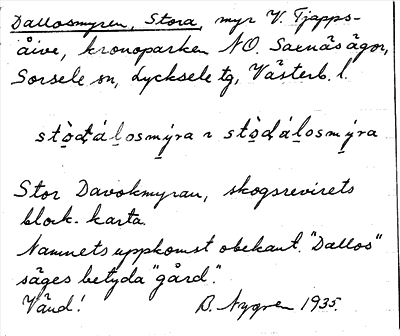 Dallosmyren, Stora, myr V. Tjapps-
åive, kronoparken NO. Saenäs ägor,
Sorsele sn, Lycksele tg, Västerb. l.
stò̱dálosmýra ~ stò̱dálosmýra
Stor Davokmyran, skogsrevirets
block-karta.
Namnets uppkomst obekant. "Dallos"
säges betyda "gård".
Vänd! B. Nygren 1935.